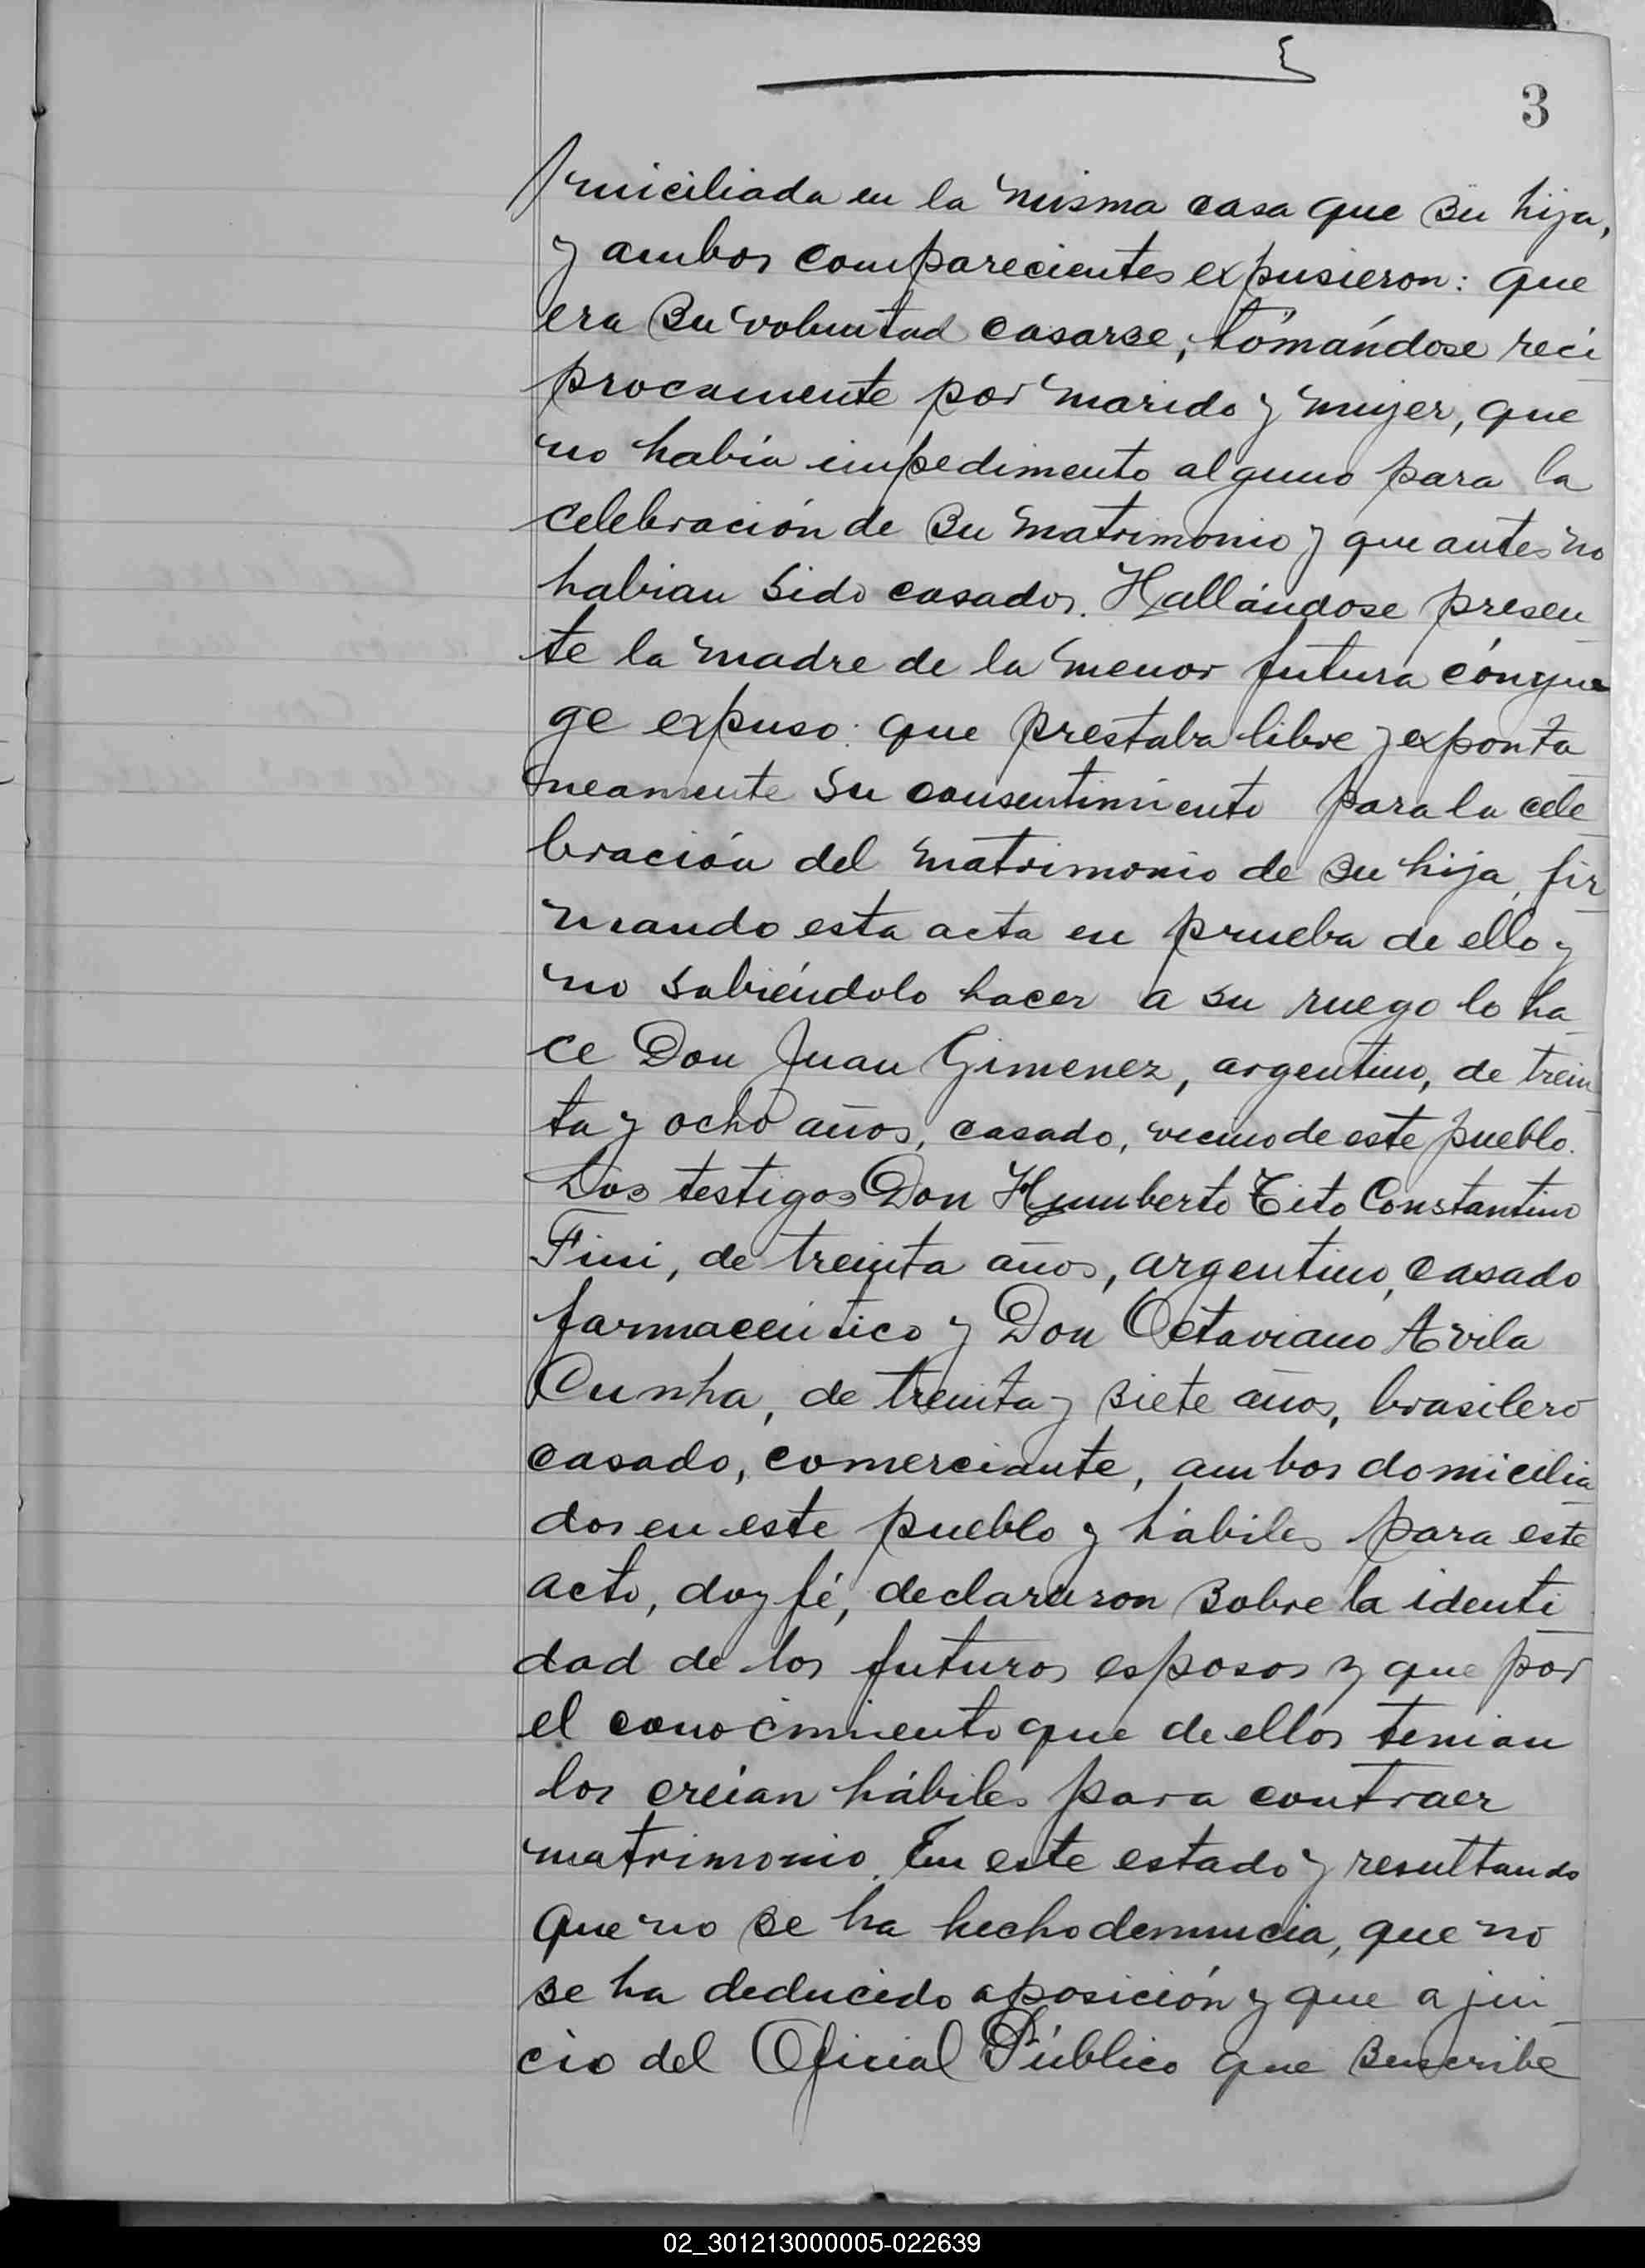 3
miciliada en la misma casa que su hija,
y ambos comparecientes expusieron: que
era su voluntad casarse, tomándose reci
procamente por marido y mujer, que
no había impedimento alguno para la
celebración de su matrimonio y que antes no
habian sido casados. Hallándose presen
te la madre de la menor futura cónyu
ge expuso: que prestaba libre y exponta
neamente su consentimiento para la cele
bración del matrimonio de su hija, fir
mando esta acta en prueba de ello y
no sabiéndolo hacer a su ruego lo ha
ce Don Juan Gimenez, argentino, de trein
ta y ocho años, casado, vecino de este pueblo.
Los testigos Don Humberto Tito Constantino
Fini, de treinta años, argentino, casado
farmaceútico y Don Octaviano Avila
Cunha, de treinta y siete años, brasilero
casado, comerciante, ambos domicilia
dos en este pueblo y hábiles para este
acto, doy fé, declararon sobre la identi
dad de los futuros esposos y que por
el conocimiento que de ellos tenian
los creían hábiles para contraer
matrimonio. En este estado y resultando
que no se ha hecho denuncia, que no
se ha deducido oposición y que a jui
cio del Oficial Público que suscribe
02_301213000005-022639